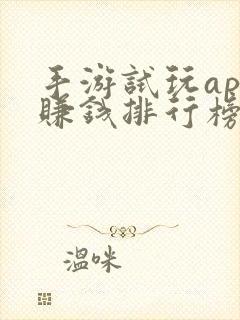 手游試玩ap
賺錢排行榜
溫咪